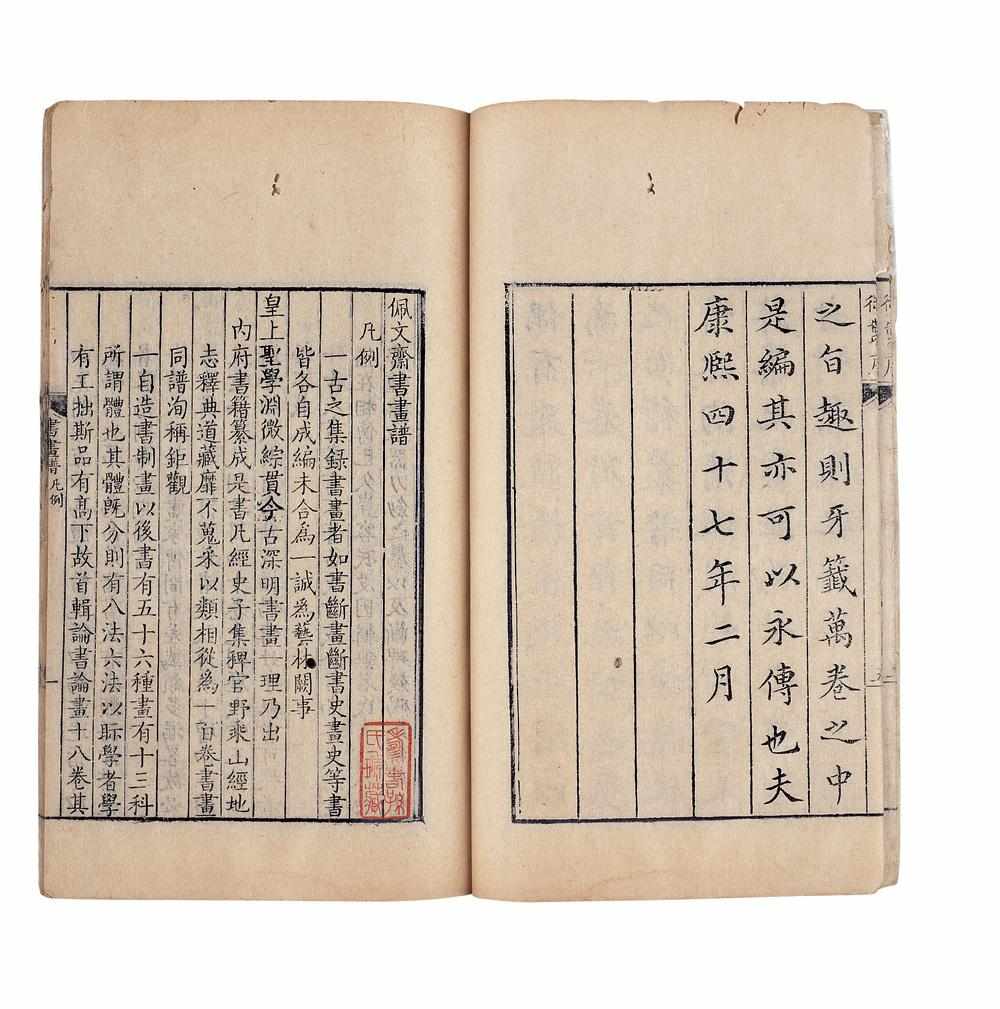 之旨趣則牙籤萬卷之中
是編其亦可以永傳也夫
康熙四十七年二月
佩文齋書畫譜
凡例
一古之集録書畫者如書斷畫斷書史畫史等書
皆各自成編未合為一誠為藝林闕事
皇上聖學淵微綜貫今古深明書畫一理乃出
內府書籍纂成是書凡經史子集稗官野乘山經地
志釋典道藏靡不蒐釆以類相從為一百卷書畫
同譜洵稱鉅觀
一自造書制畫以後書有五十六種畫有十三科
所謂體也其體旣分則有八法六法以眎學者學
有工拙斯品有髙下故首輯論書論畫十八卷其
書畫譜 凡例
一